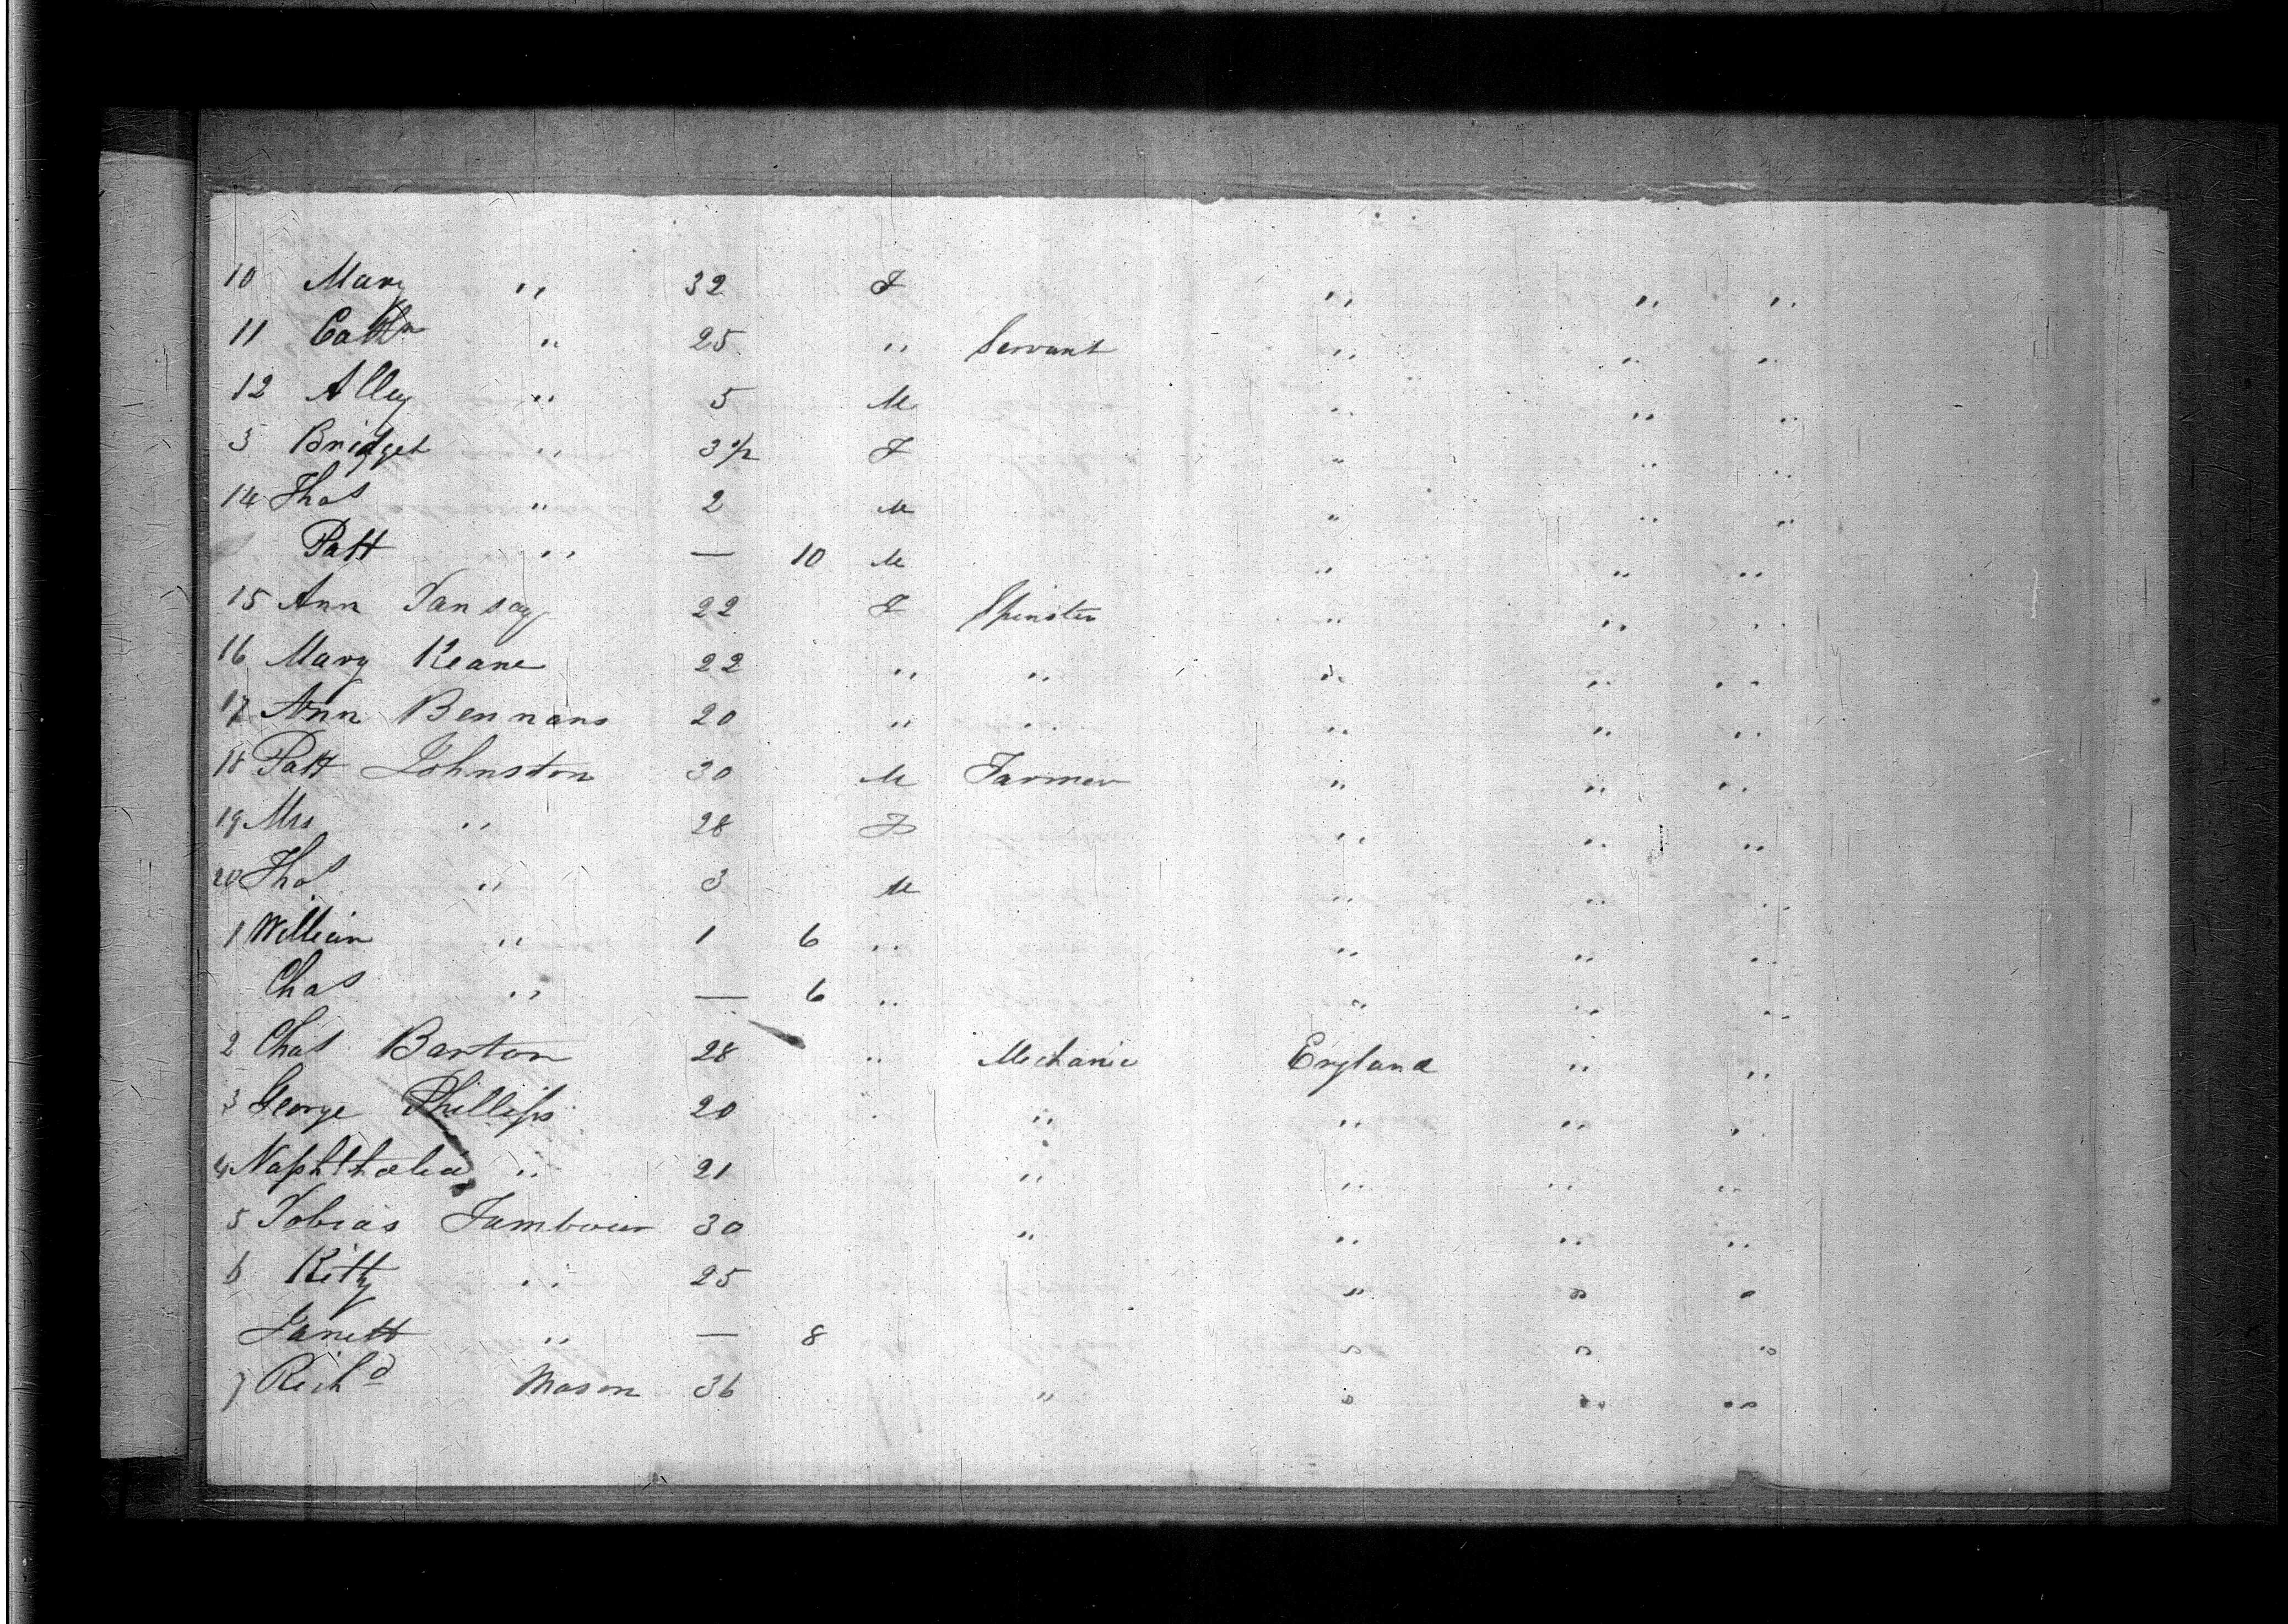 10 Mary " 32 F " " "
11 Cathn " 25 " Servant " " "
12 Alley " 5 M " " "
3 Bridget " 3 1/2 F " " "
14 Thos " 2 M " " "
Patt " — 10 M " " "
15 Ann Tansay 22 F Spinster " " "
16 Mary Keane 22 " " " " "
17 Ann Bennans 20 " " " " "
18 Patt Johnston 30 M Farmer " " "
19 Mrs " 28 F " " "
20 Thos " 3 M " " "
1 William " 1 6 " " " "
Chas " — 6 " " " "
2 Chas Barton 28 " Mechanic England " "
3 George Phillips 20 " " " "
4 Naphthalia " 21 " " " "
5 Tobias Tambour 30 " " " "
6 Kitty " 25 " " "
Janett " — 8 " " "
7 Richd Mason 36 " " " "